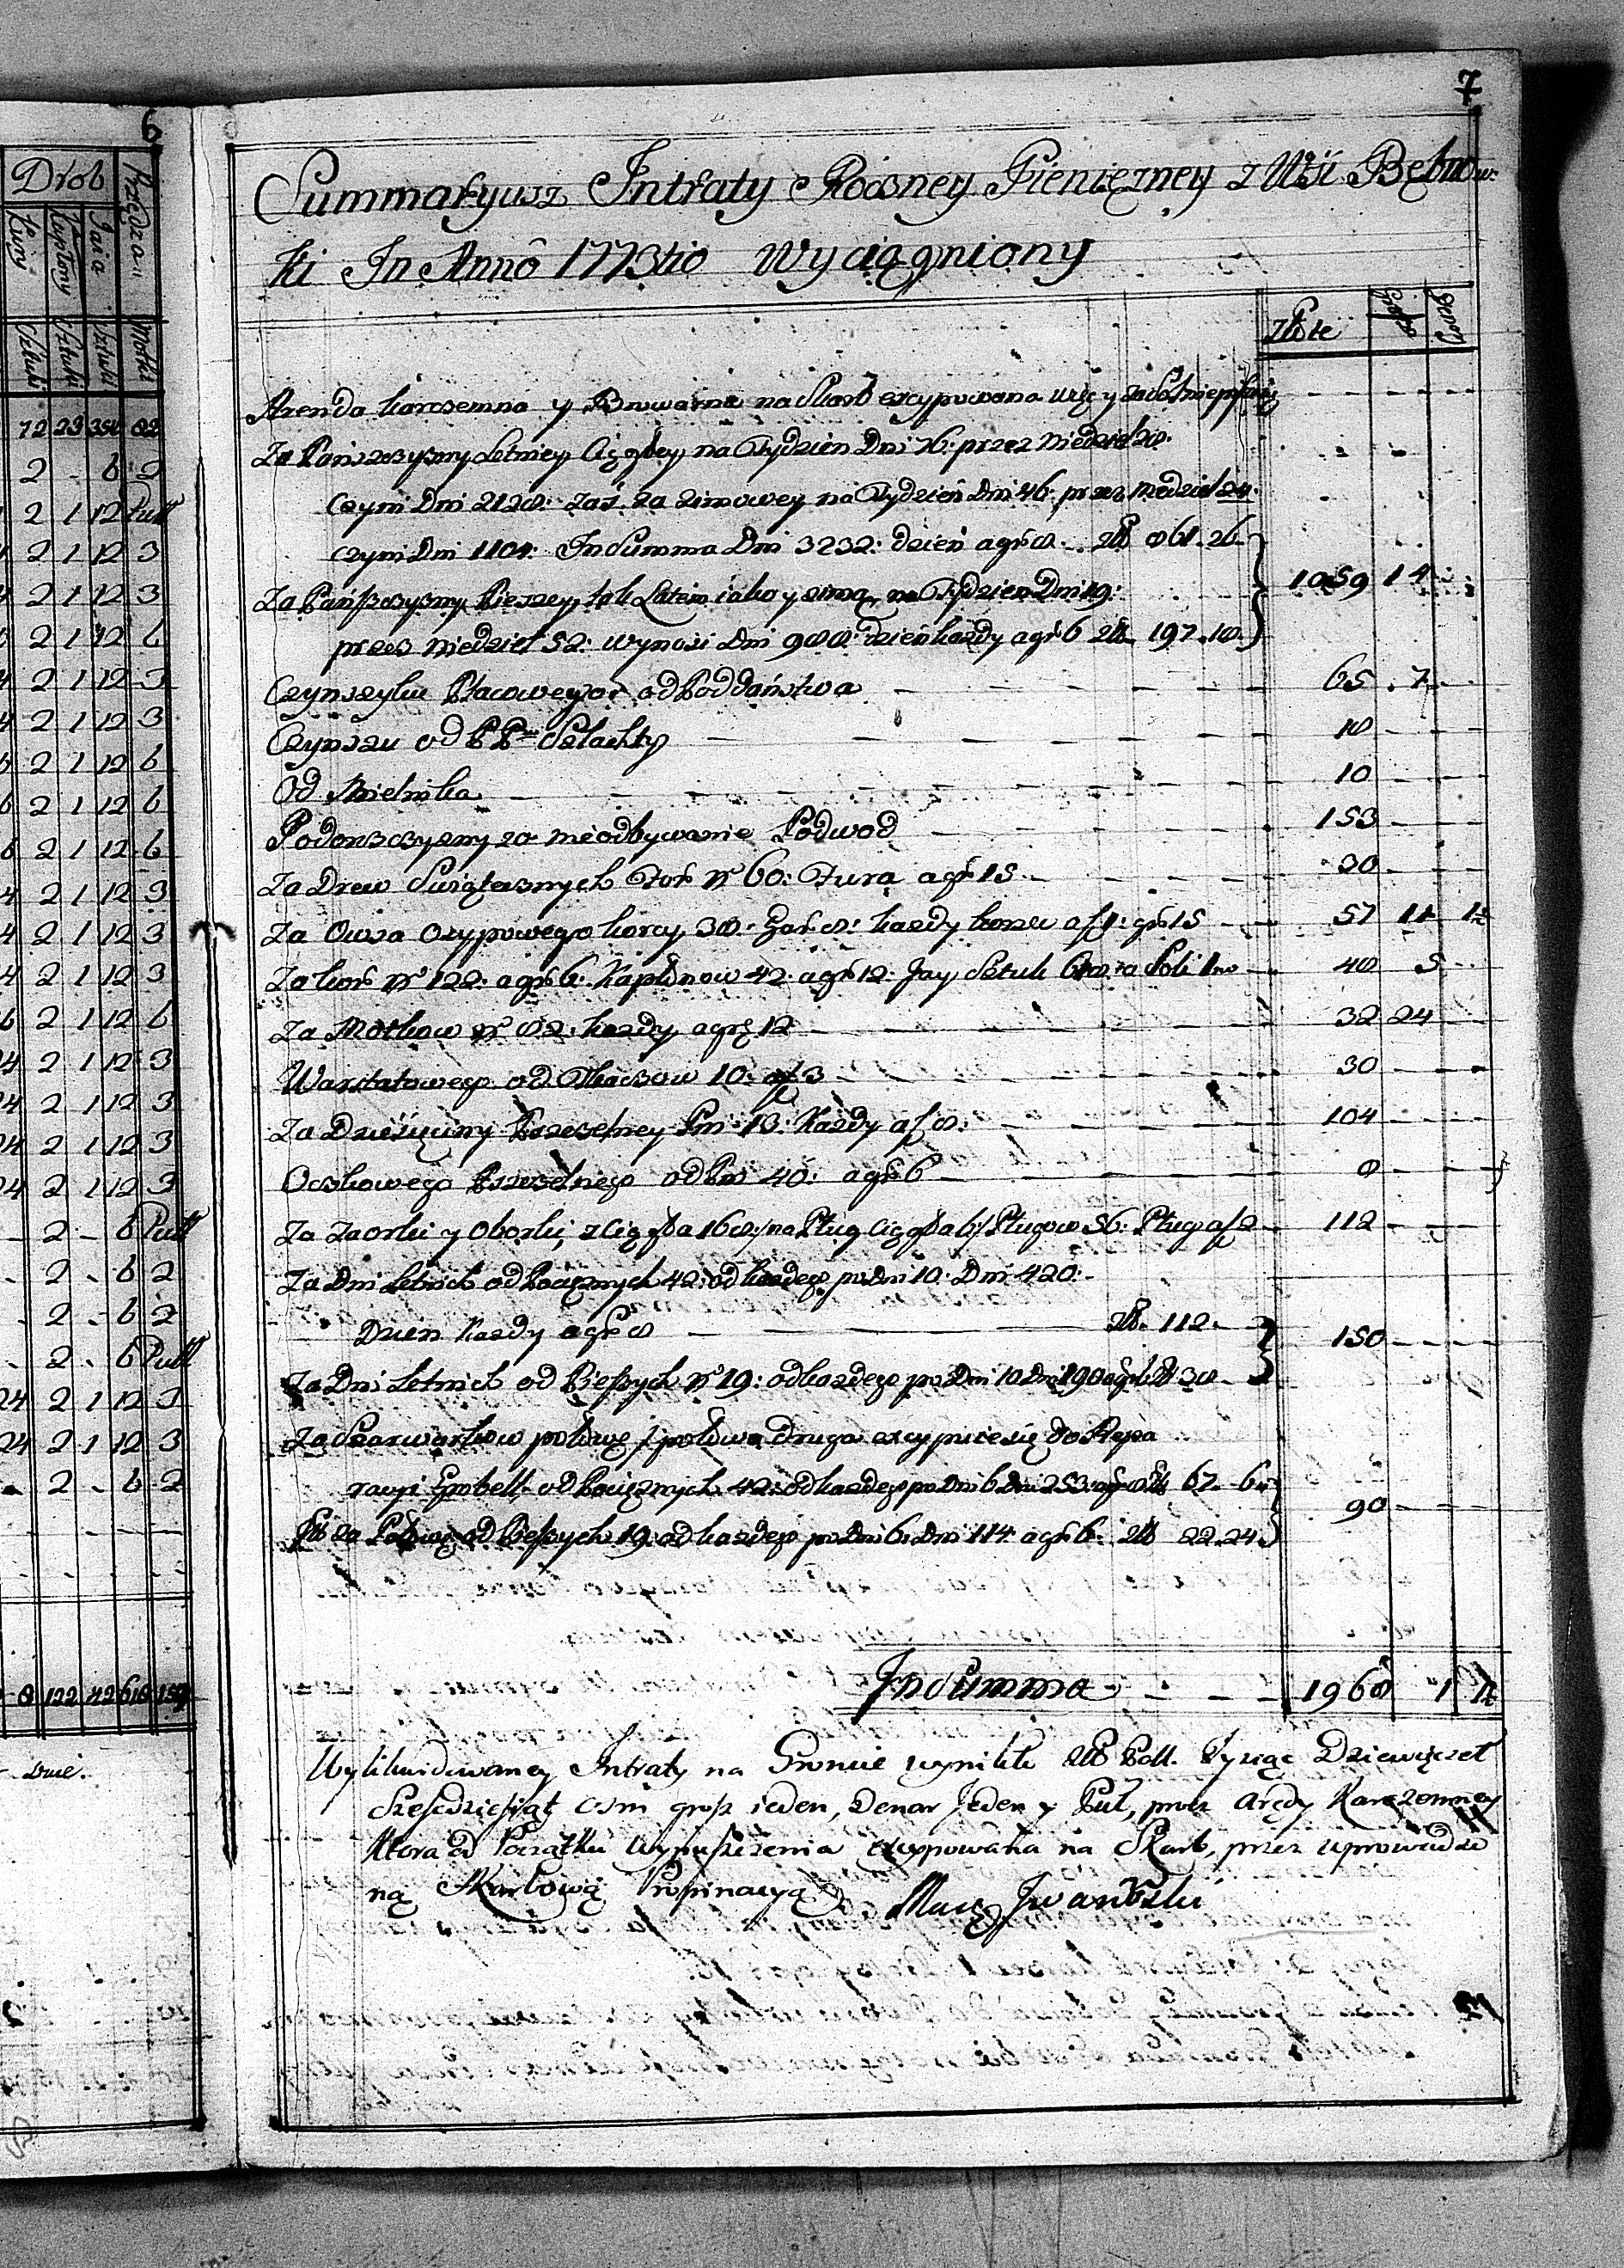 6
Drob
Przędza
Kury
Kapłony
Jaia
Sztuki
Sztuki
Sztuki
Motki
72 23 354 82
2 - 6 2
2 1 12 Pułt
2 1 12 3
2 1 12 3
2 1 12 6
2 1 12 3
2 1 12 3
2 1 12 6
2 1 12 6
2 1 12 6
2 1 12 3
2 1 12 3
2 1 12 3
2 1 12 6
2 1 12 3
2 1 12 3
2 1 12 3
2 1 12 3
2 - 6 Pułt
2 - 6 2
2 - 6 2
2 - 6 Pułt
2 1 12 3
2 1 12 3
2 - 6 2
8 122 42 618
7
Summaryusz Intraty Roczney Pieniężney z Wsi Bębnow
ki In Anno 1773tio Wyciągniony
Złote Grosze Denary
Arenda karczemna y Browarna na Skarb excypowana więc y
Za Pańszczyzny Letniey Ciągłey na Tydzien Dni 76: przez niedziel 28:
czyni Dni 2128: Zaś za zimowey na Tydzień Dni 46: przez niedziel 24:
czyni Dni 1104: In Summa Dni 3232: dzień agr 8. Zł 861.26.
Za Pańszczyzny Pieszey, tak Latem iako y zimą, na Tydzien Dni 19:
przez niedziel 52: wynosi Dni 988: dzień każdy agr 6 Zł 197.18. 1059 14
Czynszyku Placowego od Poddaństwa 65 . 7
Czynszu od PP Szlachty 18
Od Mielnika 10
Podorszczyzny za nieodbywanie Podwod 153
Za Drew Swiątecznych For Nr 60: Fura agr 15 30
Za Owsa Osypowego korcy 38: Gar 8: każdy korzec af 1: gr 15 57 11 1½
Za kur Nr 122: agr 6: Kapłonow 42: agr 12: Jay Sztuk 48 5
Za Motkow Nr 82: każdy agr 12 32 24
Warstatowego od Tkaczow 10: af 3 30
Za Dziesięciny Pszczelney Pni 13: Każdy af 8: 104
Oczkowego Pszczelnego od Pni 40: agr 6 8
Za Zaorki y Oborki, z Ciągła 16 na Pług Ciągła Pługow 56: Pług af 2 112
Za Dni Letnich od Pociężnych 42: od każdego po Dni 10: Dni 420:
Dzien Każdy agr 8 Zł 112.
150
Za Dni Letnich od Pieszych Nr 19: od każdego po Dni 10 Dni 190 agr 6 Zł 38
Za Szarwarkow połowę, połowa druga excypuie się do Repa
racyi Grobell, od Pociężnych 42: od każdego po Dni 6 Dni 253: agr 8 Zł 67. 6
90
za Połowę od Pieszych 19 od każdego po Dni 6 Dni 114 agr 6: Zł 22.24.
In Summa 1968 1 1½
Wylikwidowaney Intraty na Gronie wynikło Zł Poll. Tysiąc Dziewięcset
Szescdziesiąt osm grosz ieden, Denar Jeden y Puł, procz Arędy Karczemney
Ktora od Początku Wypuszczenia excypowana na Skarb, przez wprowadzo
ną Skarbową Propinacyą. Iwański